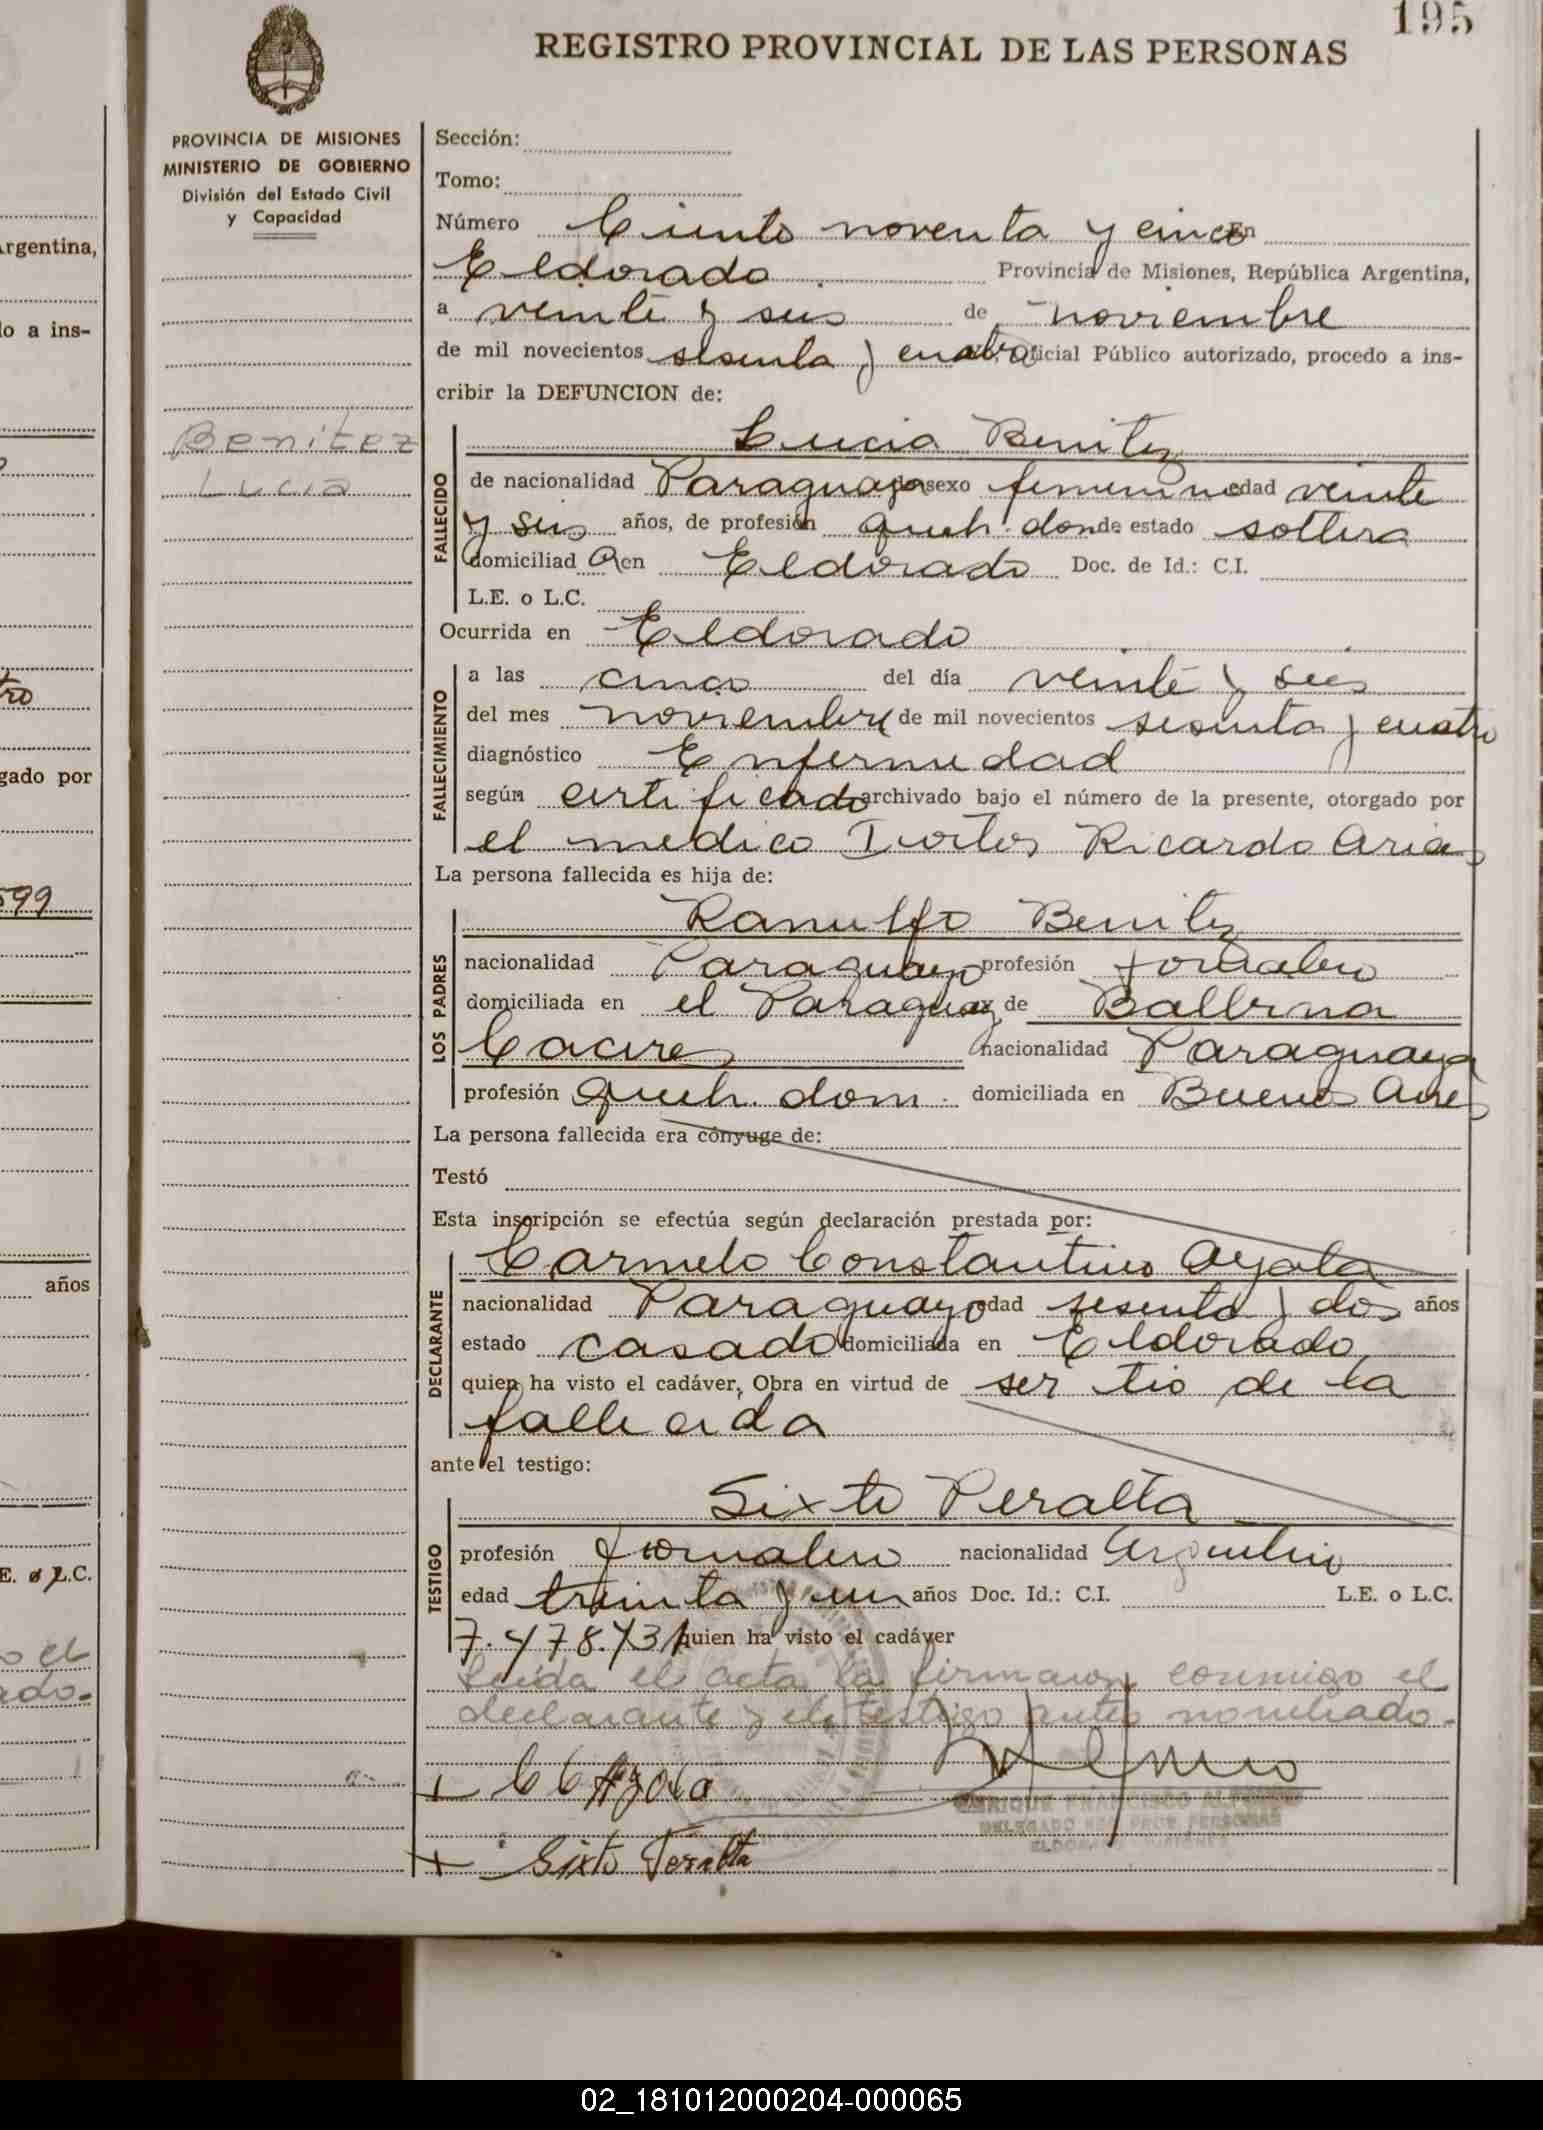 195
REGISTRO PROVINCIAL DE LAS PERSONAS
PROVINCIA DE MISIONES
MINISTERIO DE GOBIERNO
División del Estado Civil
y Capacidad
Benitez
Lucia
Sección:
Tomo:
Número Ciento noventa y cinco En
Eldorado Provincia de Misiones, República Argentina,
a veinte y seis de noviembre
de mil novecientos sesenta y cuatro Oficial Público autorizado, procedo a ins-
cribir la DEFUNCION de:
FALLECIDO
Lucia Benitez
de nacionalidad Paraguaya de sexo femenino edad veinte
y seis años, de profesión queh. dom de estado soltera
domiciliad a en Eldorado Doc. de Id.: C.I.
L.E. o L.C.
Ocurrida en Eldorado
FALLECIMIENTO
a las cinco del día veinte y seis
del mes noviembre de mil novecientos sesenta y cuatro
diagnóstico Enfermedad
según certificado archivado bajo el número de la presente, otorgado por
el medico Ricardo Arias
La persona fallecida es hija de:
LOS PADRES
Ranulfo Benitez
nacionalidad Paraguayo profesión Jornalero
domiciliada en el Paraguay y de Balbina
Caceres nacionalidad Paraguaya
profesión queh. dom. domiciliada en Buenos Aires
La persona fallecida era cónyuge de:
Testó
Esta inscripción se efectúa según declaración prestada por:
DECLARANTE
Carmelo Constantino Ayala
nacionalidad Paraguayo edad sesenta y dos años
estado casado domiciliada en Eldorado
quien ha visto el cadáver, Obra en virtud de ser tio de la
fallecida
ante el testigo:
TESTIGO
Sixto Peralta
profesión Jornalero nacionalidad Argentino
edad treinta y un años Doc. Id.: C.I. L.E. o L.C.
7.478.431 quien ha visto el cadáver
Leida el acta la firman conmigo el
declarante y el testigo antes nombrado.
+ C C Ayala
ENRIQUE FRANCISCO
DELEGADO REG. PROV. PERSONAS
+ Sixto Peralta
Argentina,
lo a ins-
gado por
599
años
E. o L.C.
02_181012000204-000065